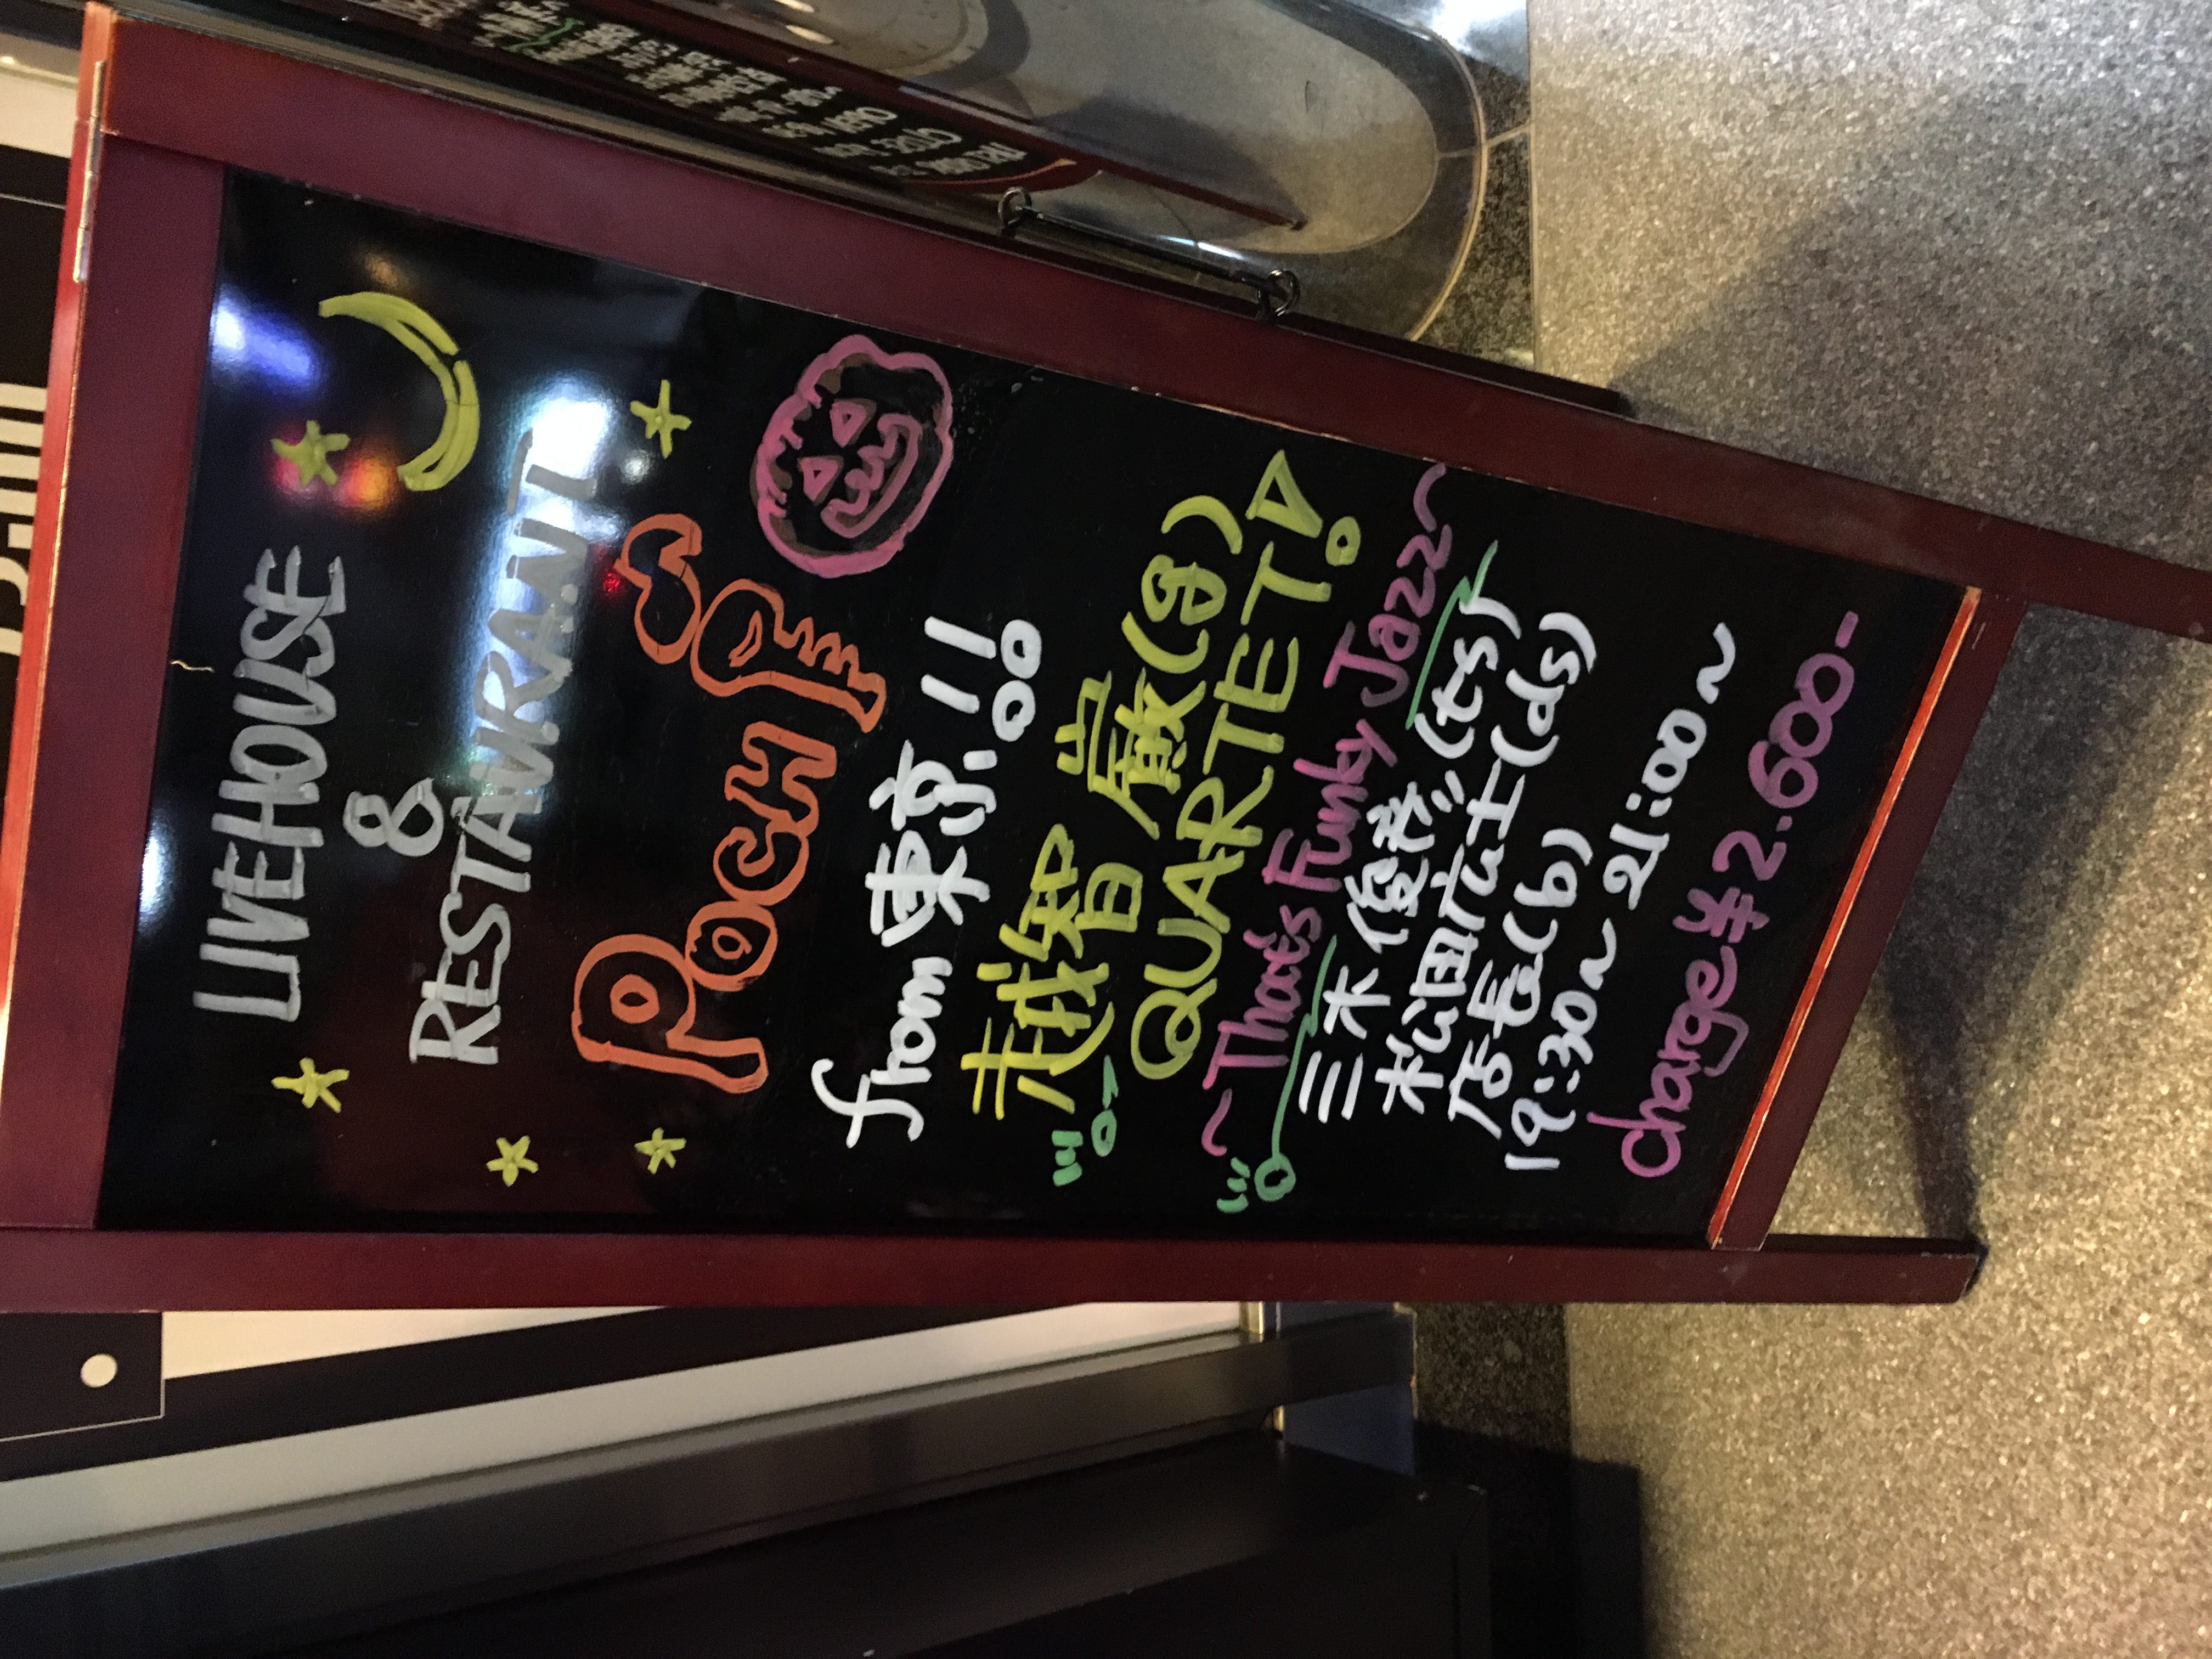 LIVEHOUSE
&
RESTAURANT
POCHI
from 東京!!
越智 巌(g)
QUARTET!
~That's Funky Jazz~
三木俊雄(ts)
松田広士(ds)
俵 (b)
19:30~ 21:00~
charge ¥2.600-